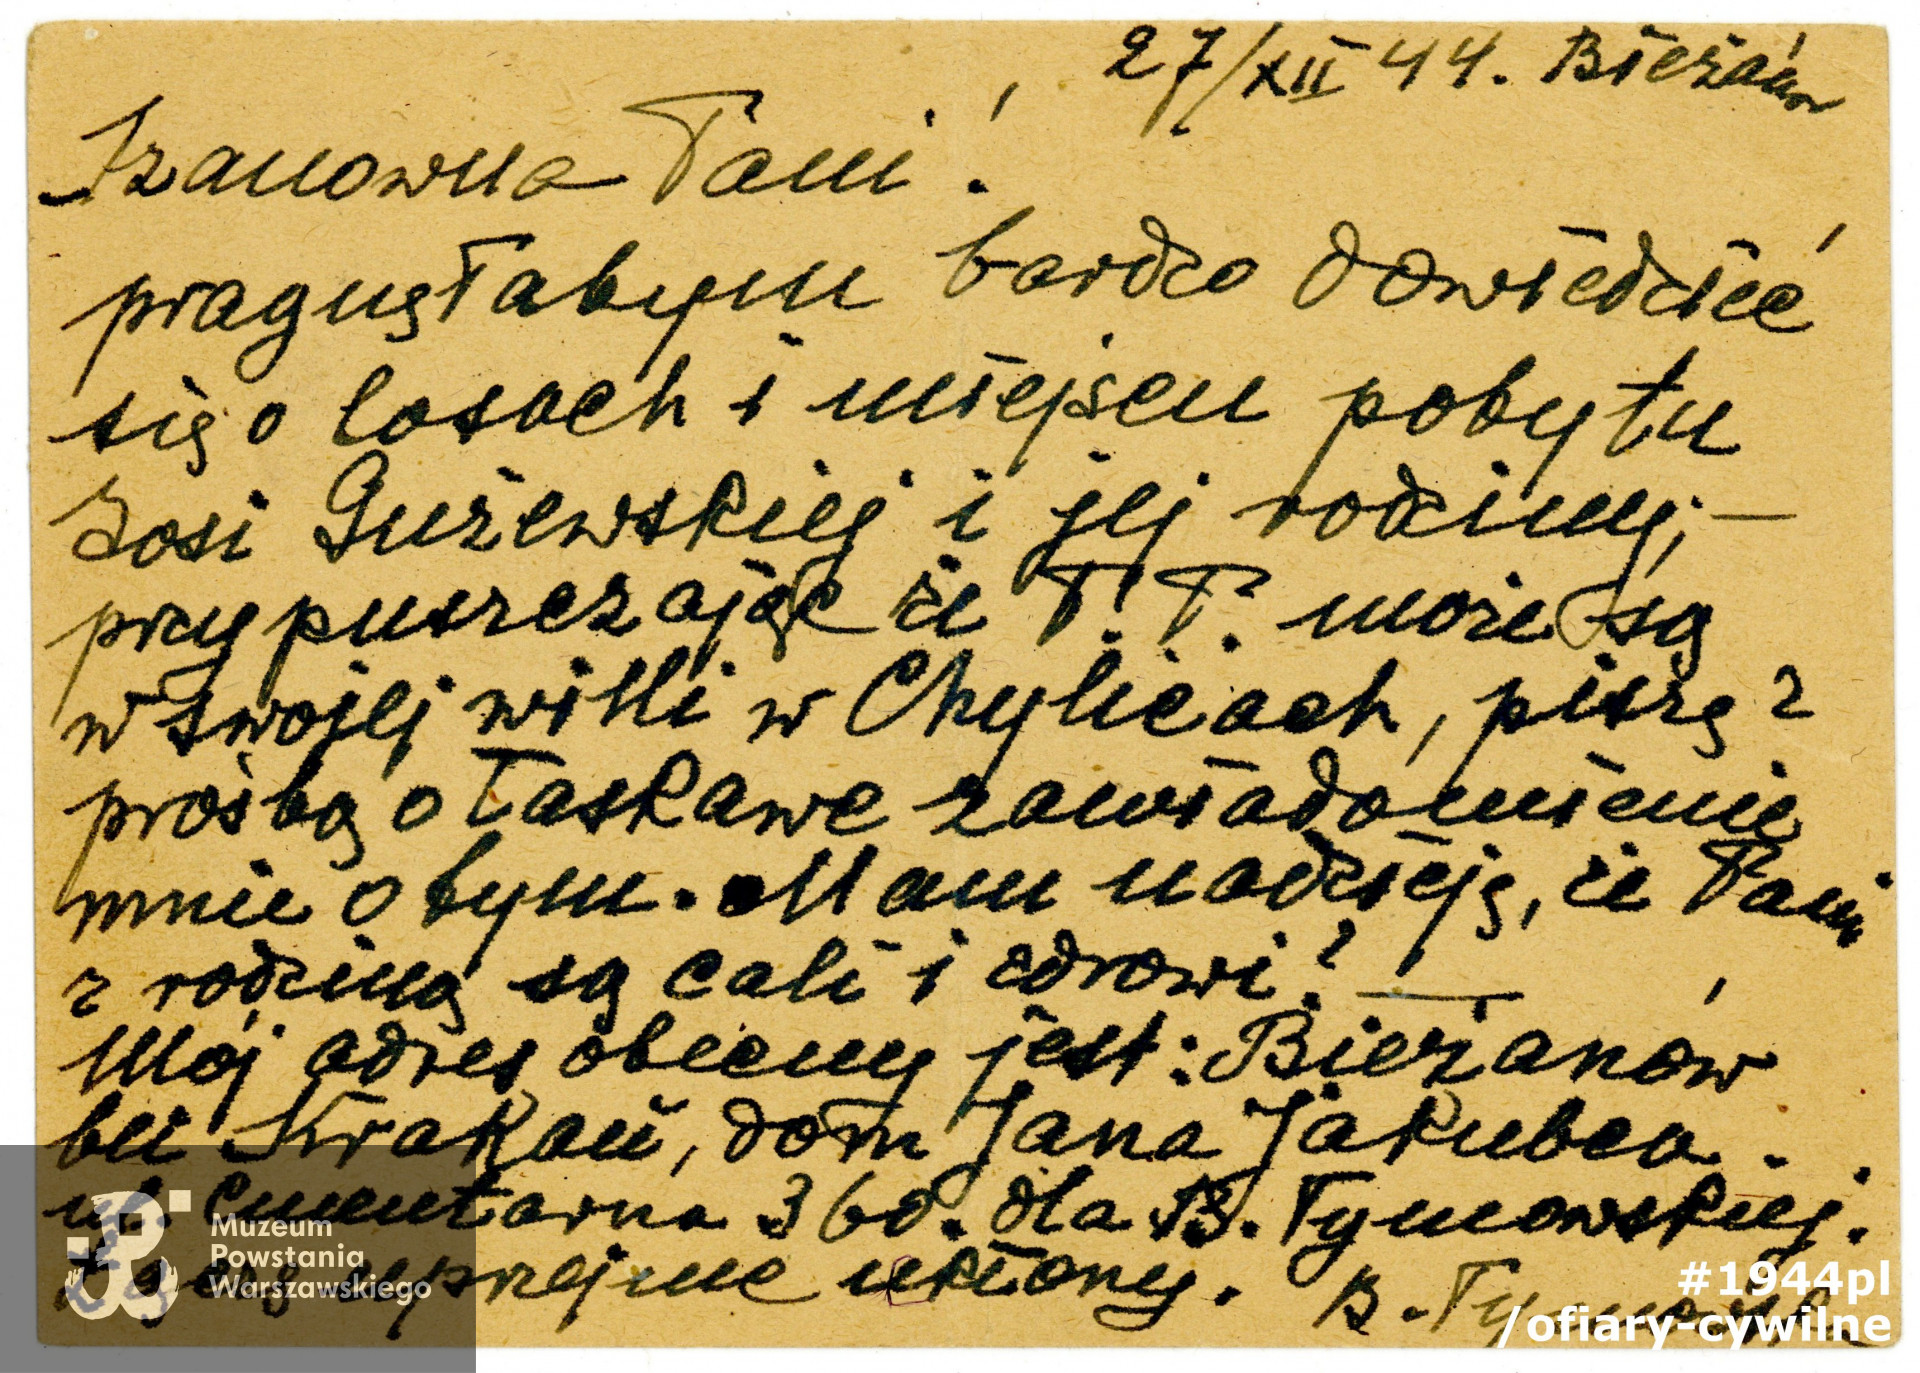 27/XII 44. Bieżanów
Szanowna Pani!
pragnęłabym bardzo dowiedzieć
się o losach i miejscu pobytu
Zosi Gużewskiej i jej rodziny, –
przypuszczając że P. P. może są
w swojej willi w Chylicach, piszę z
prośbą o łaskawe zawiadomienie
mnie o tym. Mam nadzieję, że Pani
z rodziną są cali i zdrowi? —
Mój adres obecny jest: Bieżanów
bei Krakau, dom Jana Jakubca.
ul. Cmentarna 360. dla B. Tymowskiej.
Łączę uprzejme ukłony. B. Tymowska
Muzeum
Powstania
Warszawskiego
#1944pl
/ofiary-cywilne